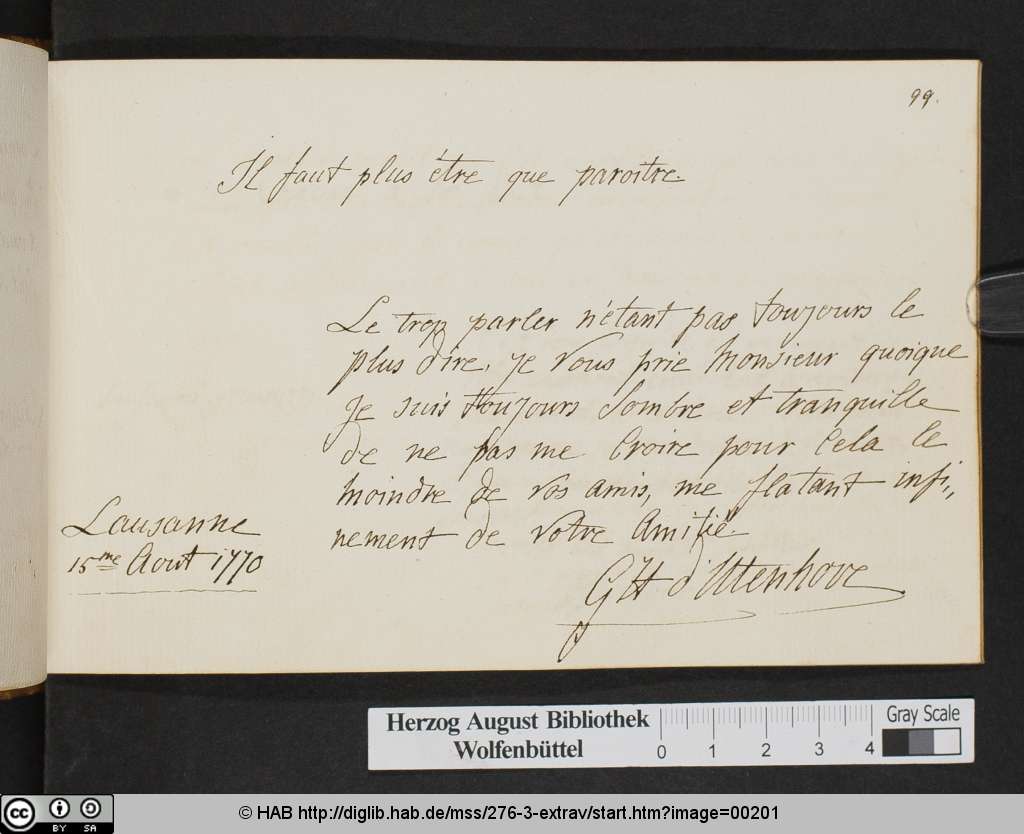 99.
Il faut plus être que paroitre.
Le trop parler n'étant pas toujours le
plus dire, je vous prie Monsieur quoique
je suis toujours sombre et tranquille
de ne pas me croire pour cela le
moindre de vos amis, me flatant infi,,
nement de votre amitié.
Lausanne
15me Aout 1770
GH d'Uttenhove
Herzog August Bibliothek
Wolfenbüttel
0 1 2 3 4
Gray Scale
cc BY SA
© HAB http://diglib.hab.de/mss/276-3-extrav/start.htm?image=00201